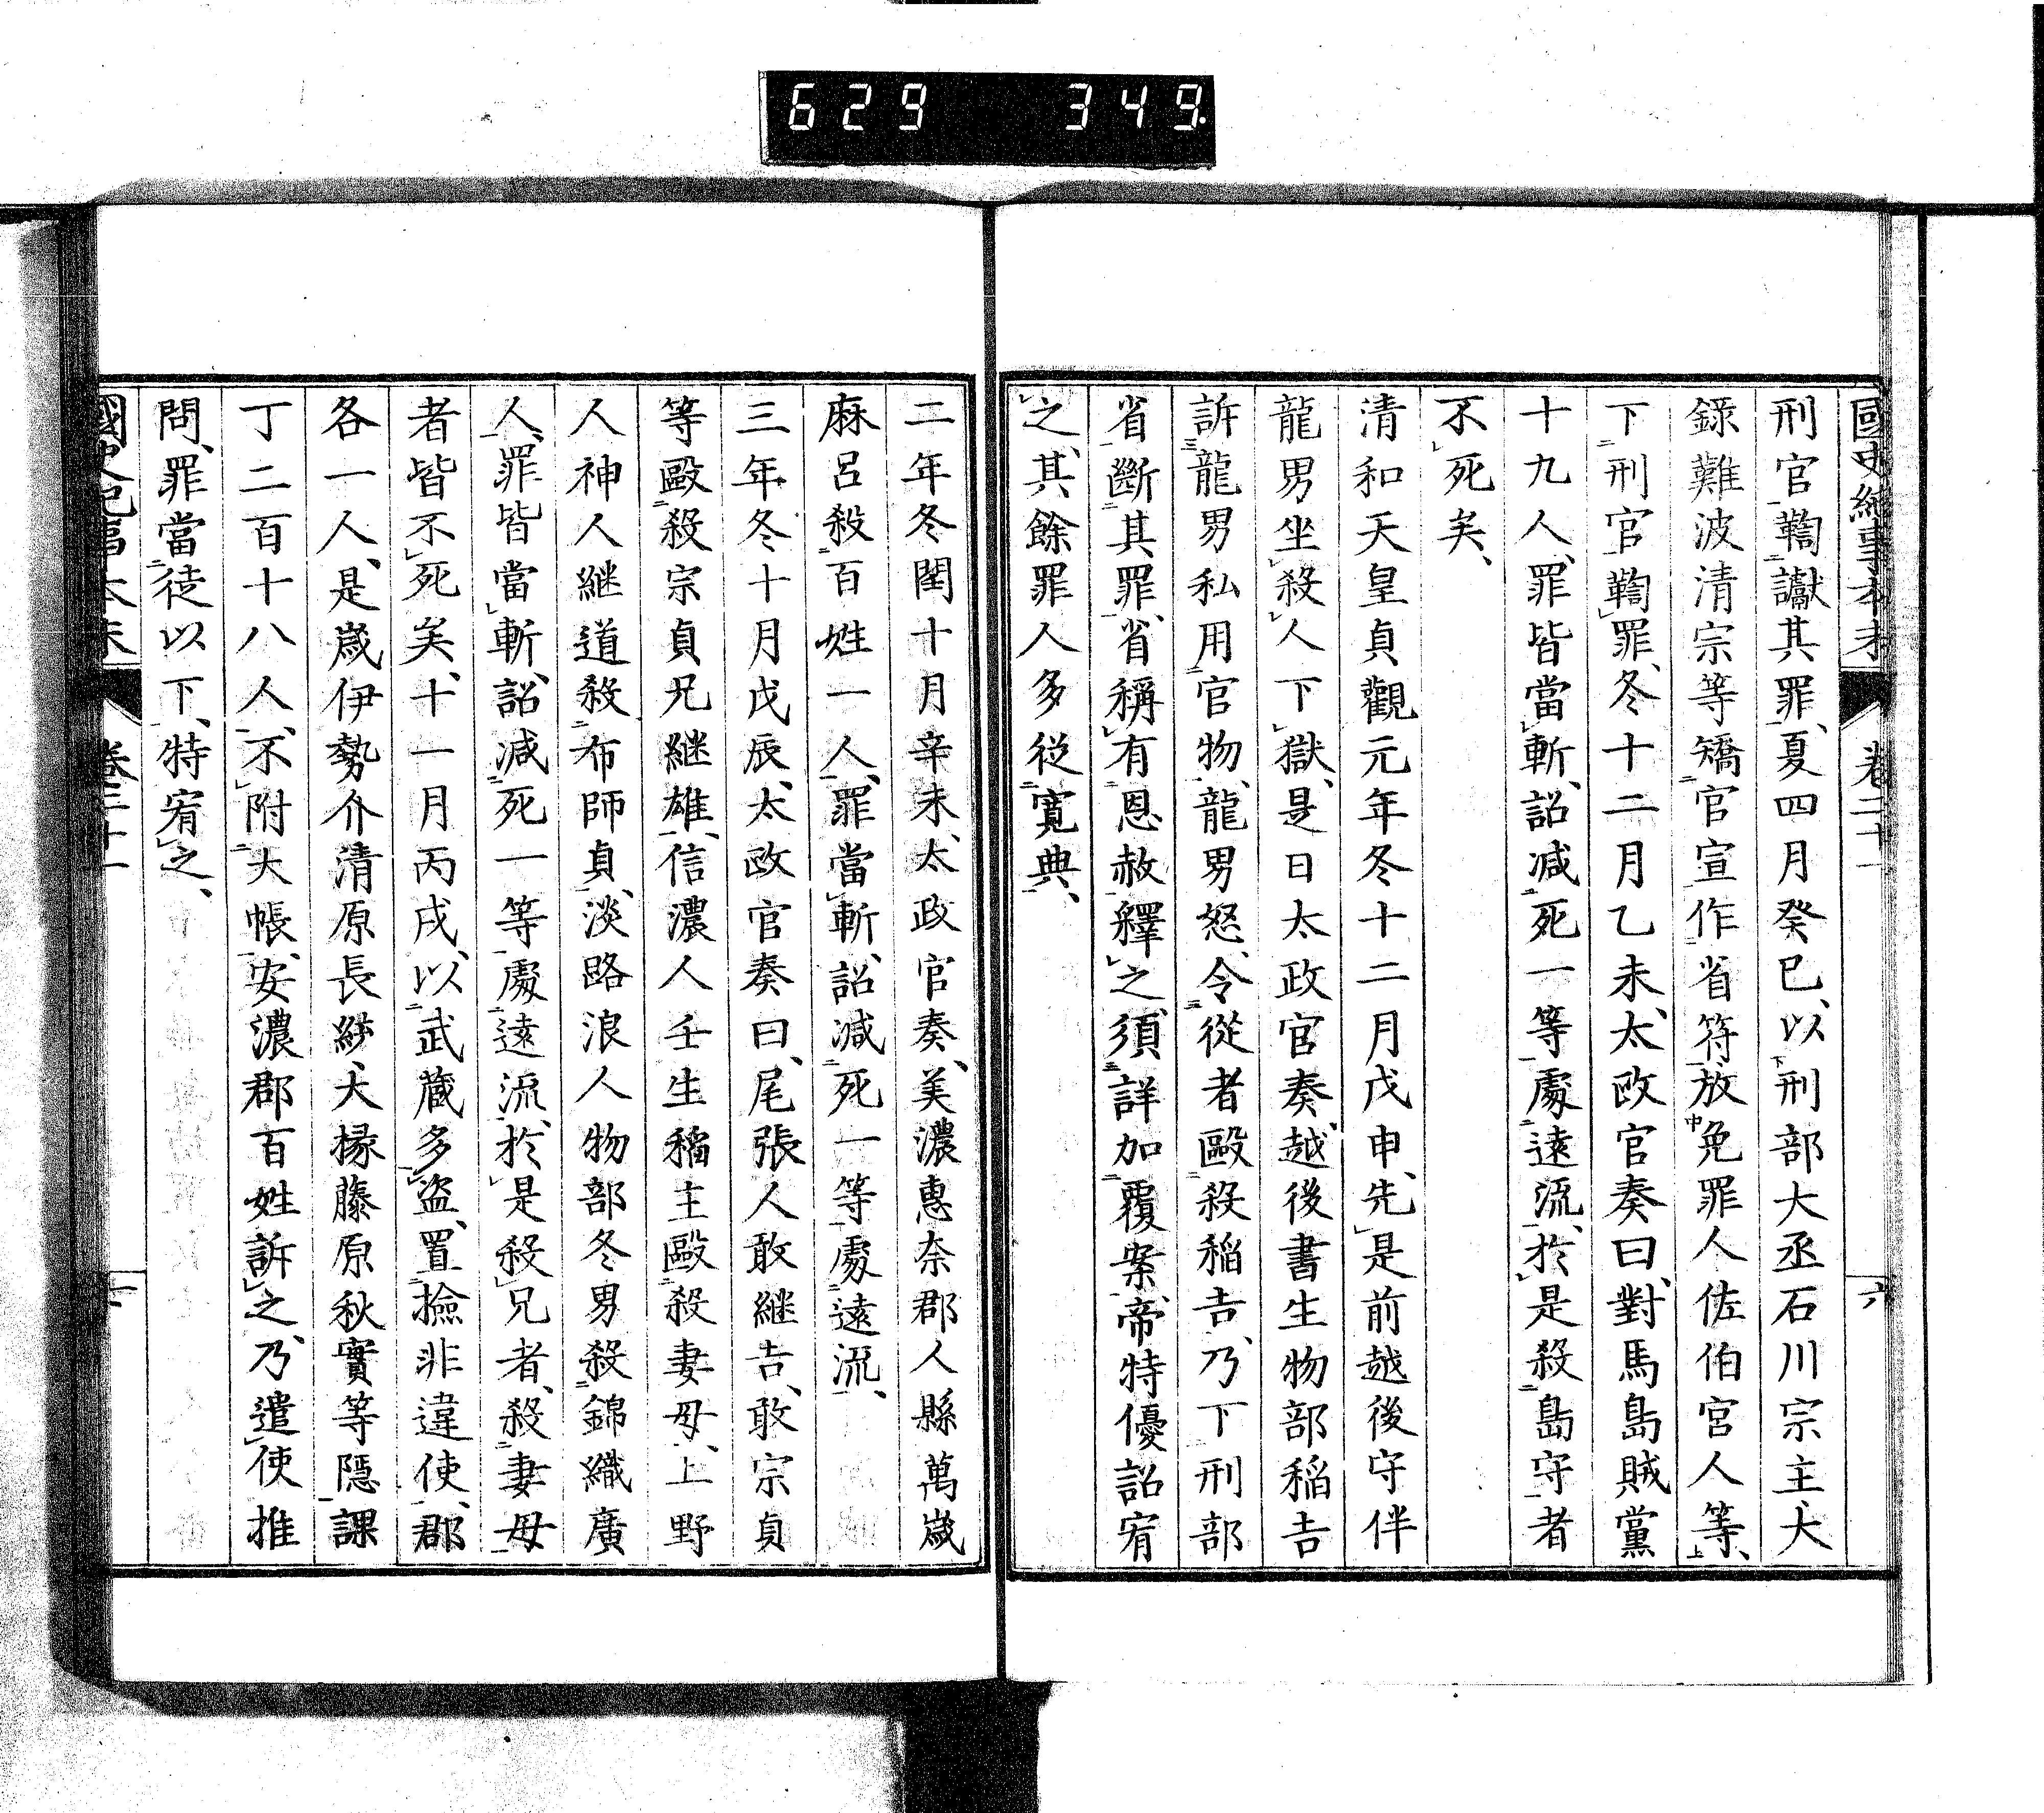 629 349
國史紀事本末 卷二十一 六
刑官鞫讞其罪、夏四月癸巳、以刑部大丞石川宗主、大
錄難波清宗等矯官宣作省符放免罪人佐伯宮人等、
下刑官鞫罪、冬十二月乙未、太政官奏曰、對馬島賊黨
十九人、罪皆當斬、詔減死一等處遠流、於是殺島守者
不死矣、
清和天皇貞觀元年冬十二月戊申、先是前越後守伴
龍男坐殺人下獄、是日太政官奏、越後書生物部稻吉
訴龍男私用官物、龍男怒、令從者毆殺稻吉、乃下刑部
省斷其罪、省稱有恩赦釋之、須詳加覆案、帝特優詔宥
之、其餘罪人多從寬典、
二年冬閏十月辛未、太政官奏、美濃惠奈郡人縣萬歲
麻呂殺百姓一人、罪當斬、詔減死一等處遠流、
三年冬十月戊辰、太政官奏曰、尾張人敢継吉、敢宗貞
等毆殺宗貞兄継雄、信濃人壬生稻主毆殺妻母、上野
人神人継道殺布師貞、淡路浪人物部冬男殺錦織廣
人、罪皆當斬、詔減死一等處遠流、於是殺兄者、殺妻母
者皆不死矣、十一月丙戌、以武藏多盜、置撿非違使、郡
各一人、是歲伊勢介清原長統、大掾藤原秋實等隱課
丁二百十八人、不附大帳、安濃郡百姓訴之、乃遣使推
問、罪當徒以下、特宥之、
國史紀事本末 卷二十一